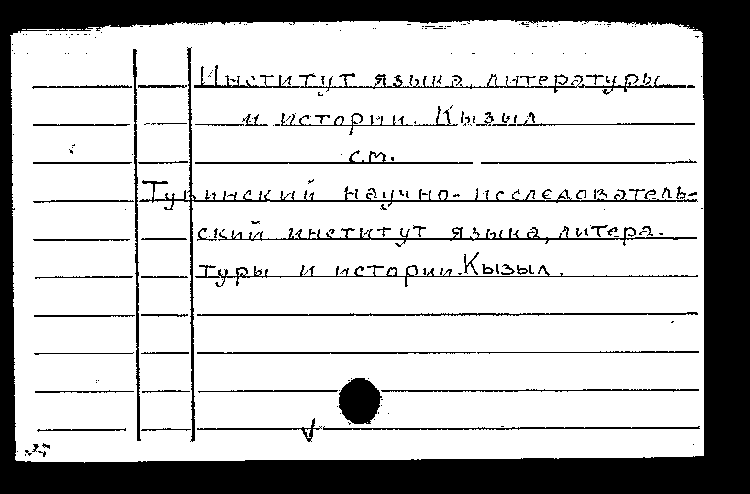 Институт языка, литературы
и истории. Кызыл
см.
Тувинский научно-исследователь-
ский институт языка, литера-
туры и истории. Кызыл.